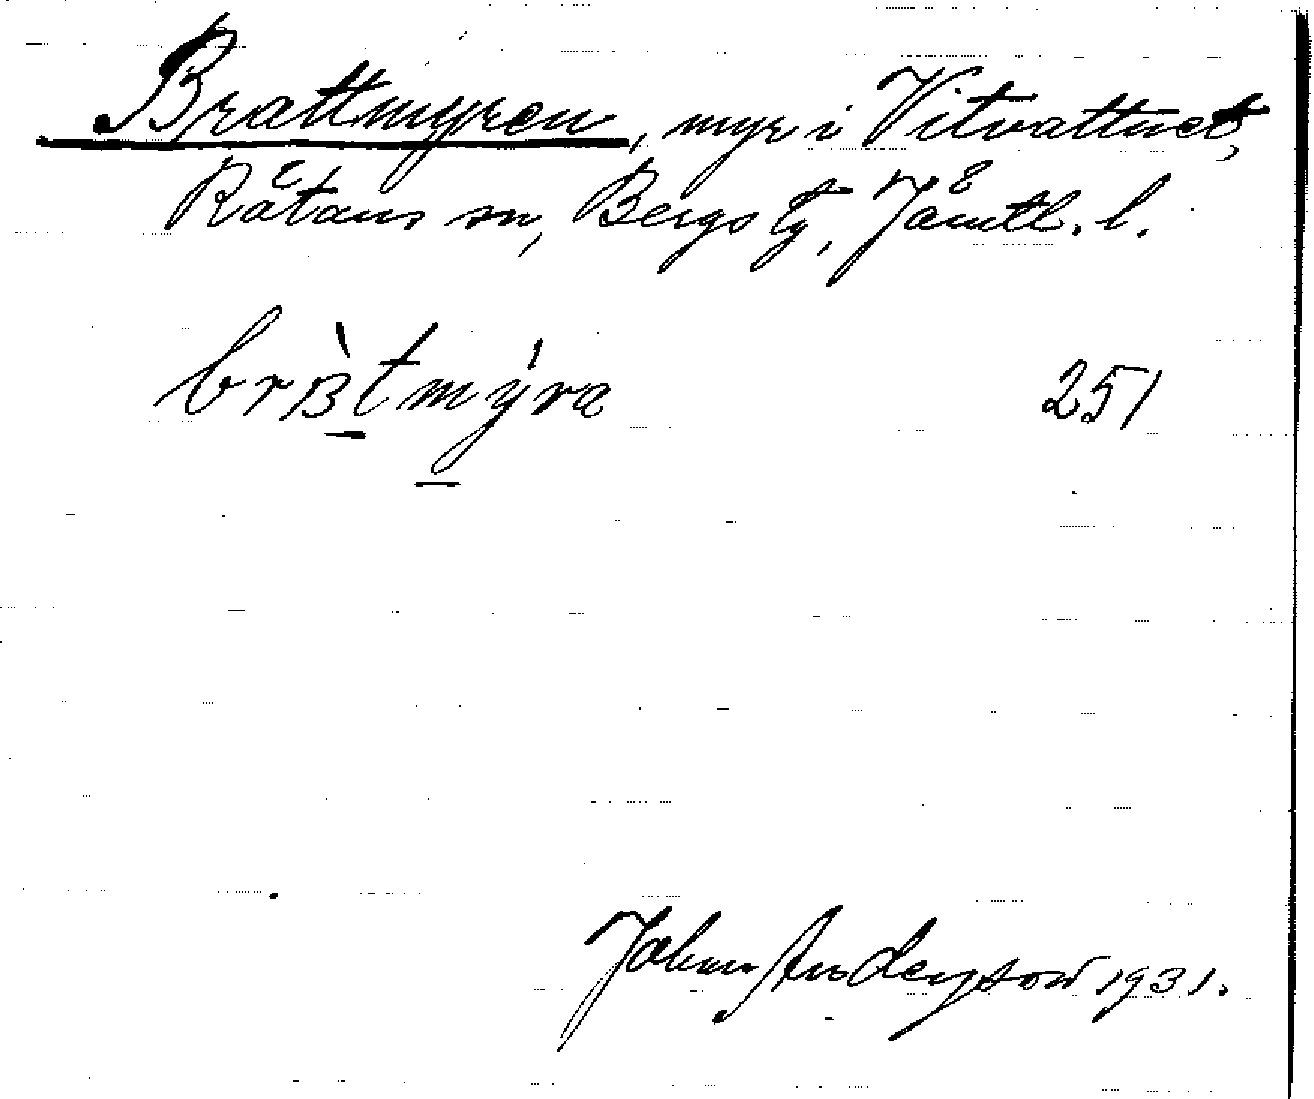 Brattmyren, myr i Vitvattnet,
Råtans sn, Bergs tg, Jämtl. l.
251
Johan Anderson 1931.